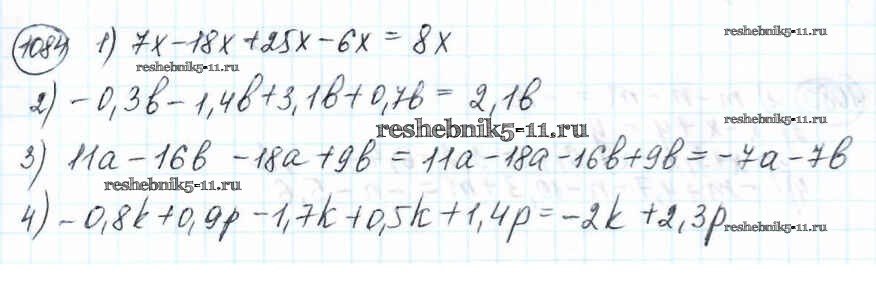 reshebnik5-11.ru
1084 1) 7x-18x+25x-6x = 8x
reshebnik5-11.ru
2) -0,3в-1,4в+3,1в+0,7в = 2,1в
reshebnik5-11.ru
3) 11a-16в -18a+9в = 11a-18a-16в+9в = -7a-7в
reshebnik5-11.ru
4) -0,8k+0,9p-1,7k+0,5k+1,4p = -2k+2,3p
reshebnik5-11.ru